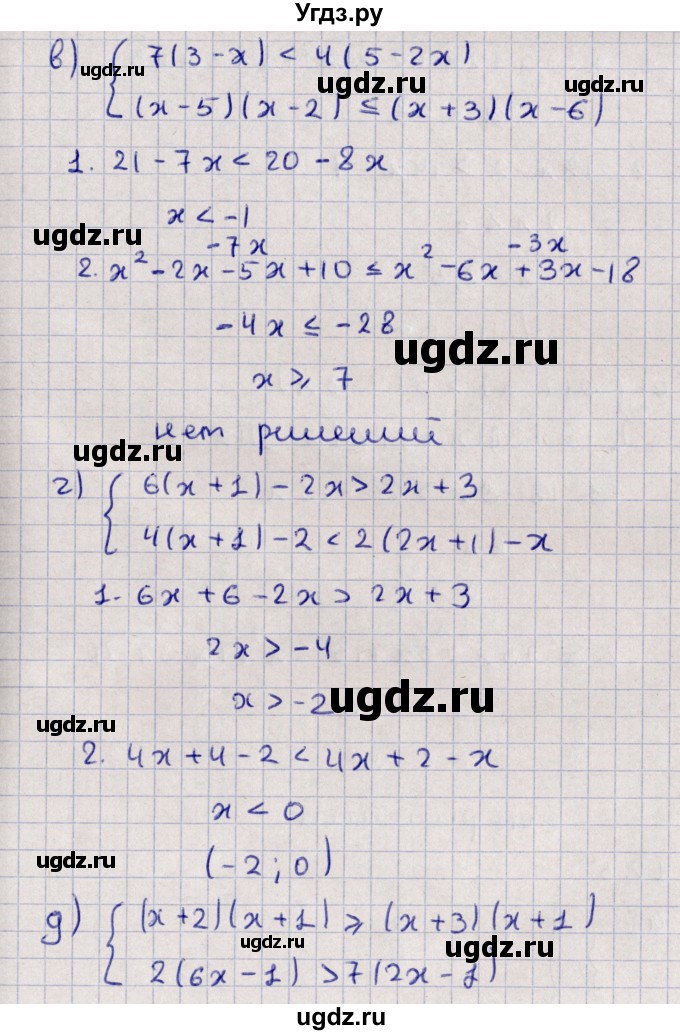 Угдз.ру
в) { 7(3-x) < 4(5-2x)
ugdz.ru
ugdz.ru
(x-5)(x-2) ≤ (x+3)(x-6)
1. 21-7x < 20-8x
x < -1
ugdz.ru
-7x -3x
2. x²-2x-5x+10 ≤ x²-6x+3x-18
-4x ≤ -28
ugdz.ru
x ⩾ 7
нет решений
ugdz.ru
г) { 6(x+1)-2x > 2x+3
ugdz.ru
4(x+1)-2 < 2(2x+1)-x
1. 6x+6-2x > 2x+3
ugdz.ru
2x > -4
x > -2
ugdz.ru
ugdz.ru
2. 4x+4-2 < 4x+2-x
x < 0
ugdz.ru
(-2;0)
ugdz.ru
д) { (x+2)(x+1) ⩾ (x+3)(x+1)
ugdz.ru
2(6x-1) > 7(2x-1)
ugdz.ru
ugdz.ru